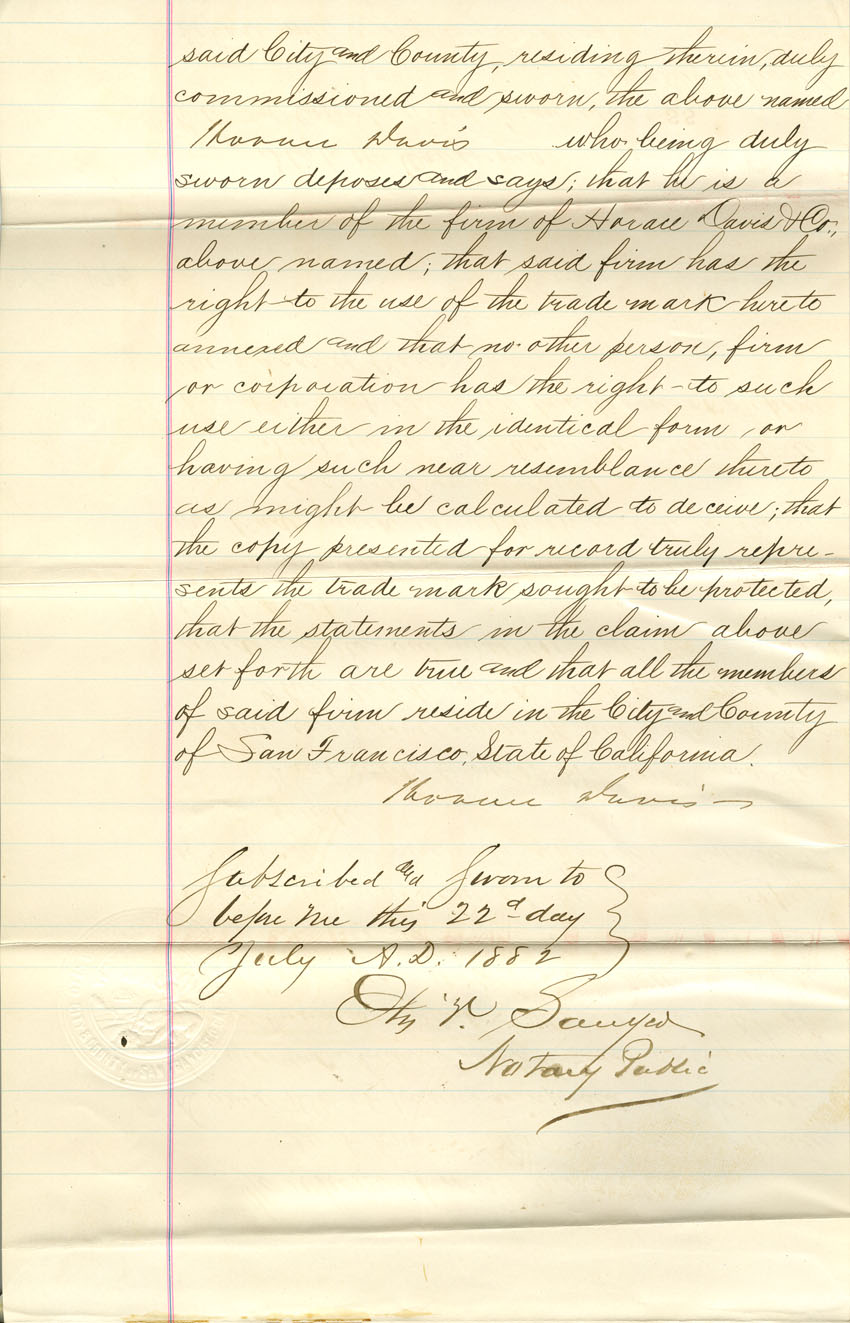 said City and County, residing therein, duly
commissioned and sworn, the above named
Horace Davis who being duly
sworn deposes and says; that he is a
member of the firm of Horace Davis & Co.,
above named; that said firm has the
right to the use of the trade mark hereto
annexed and that no other person, firm
or corporation has the right to such
use either in the identical form or
having such near resemblance thereto
as might be calculated to deceive; that
the copy presented for record truly repre-
sents the trade mark sought to be protected,
that the statements in the claim above
set forth are true and that all the members
of said firm reside in the City and County
of San Francisco, State of California.
Horace Davis
Subscribed and Sworn to
before me this 22d day
July A.D. 1882
V. Sawyer
Notary Public